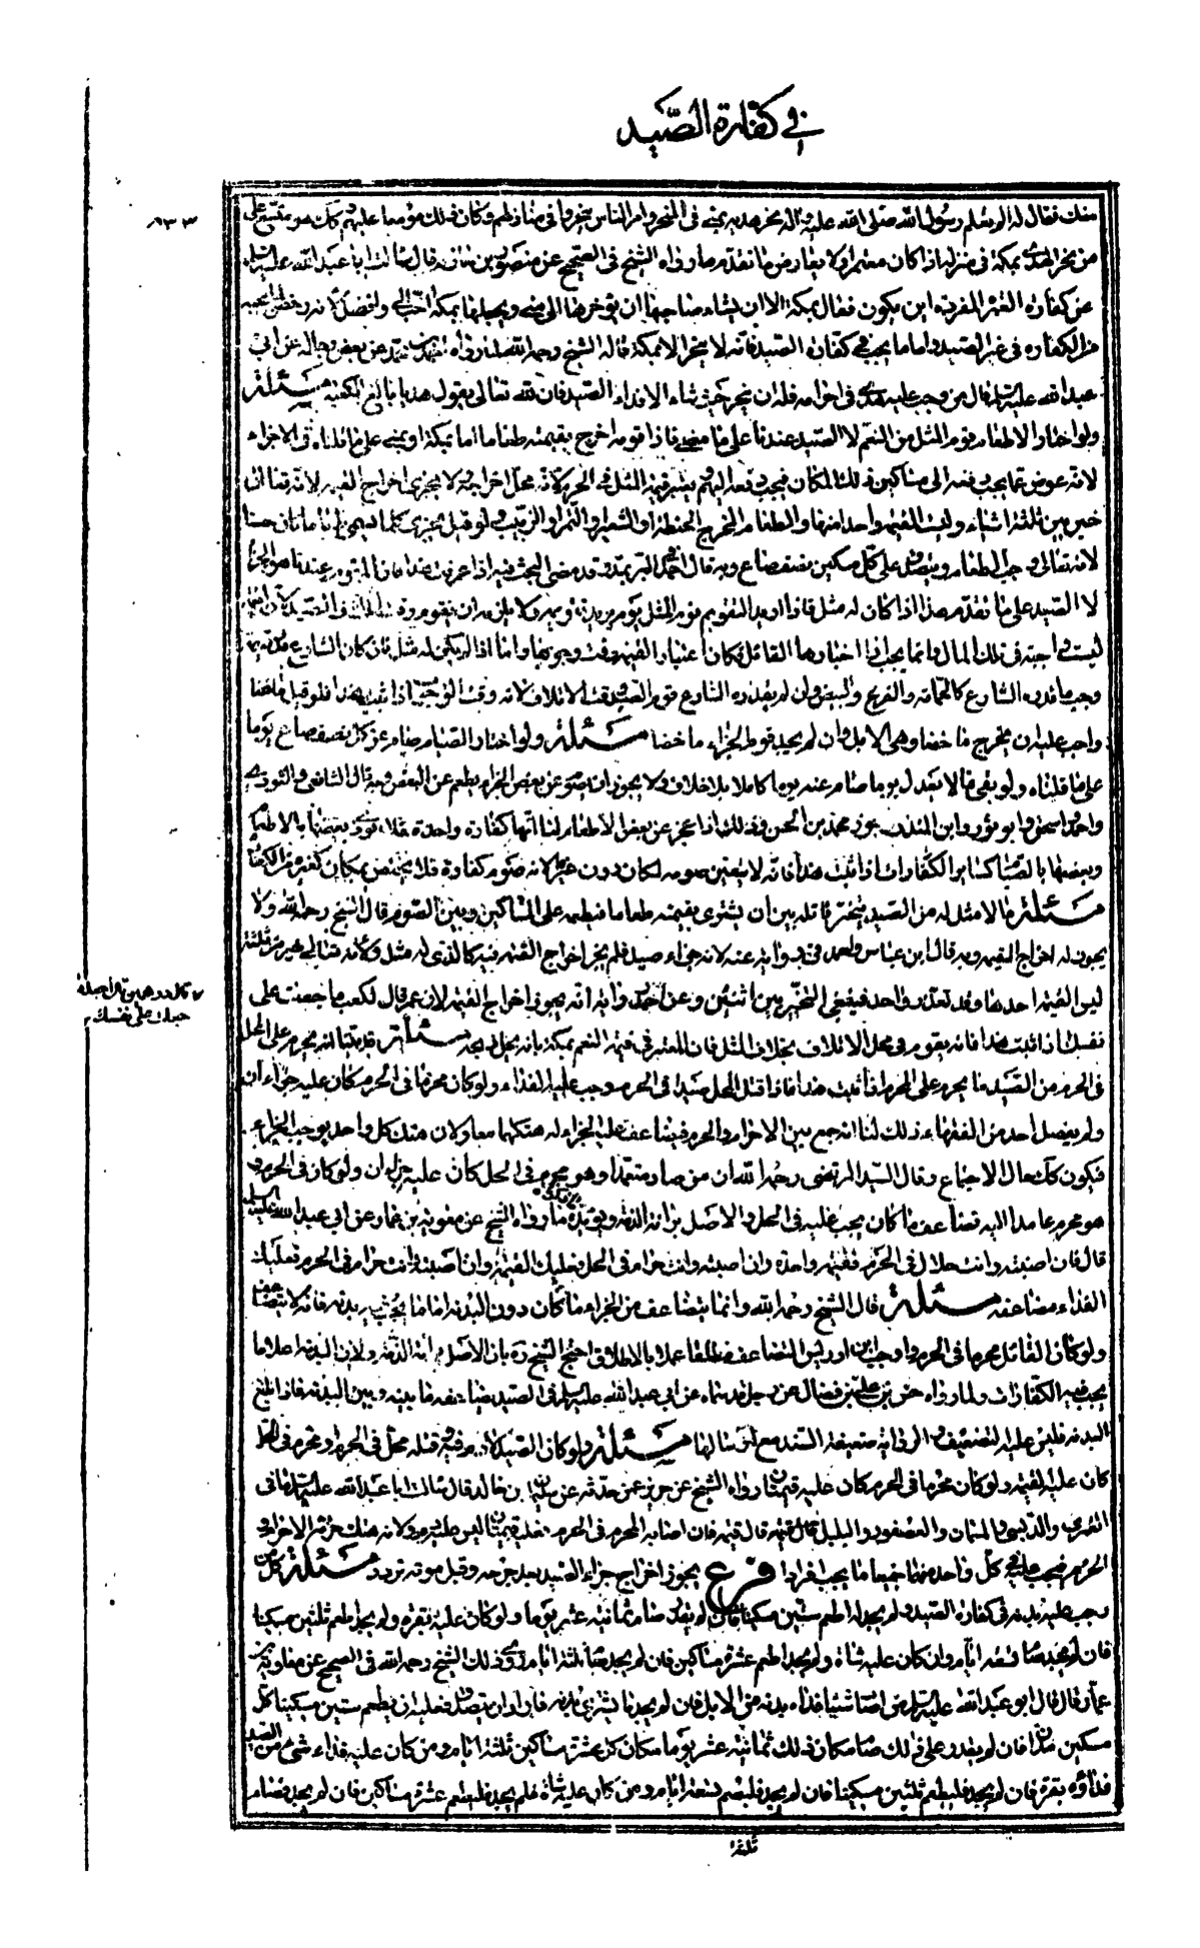 في كفارة الصيد
٨٣٣
منك فقال له الم تعلم رسول الله صلى الله عليه وآله نحر هديه بمنى في المنحر وامر الناس فنحروا في منازلهم وكان ذلك موسعا عليهم فكذلك هو موسع على
من نحر الهدي بمكة في منزله اذا كان معتمرا ولا يعارض ما تقدم ما رواه الشيخ في الصحيح عن منصور بن حازم قال سالت ابا عبد الله عليه السلام
عن كفارة العمرة المفردة اين يكون فقال بمكة الا ان يشاء صاحبها ان يؤخرها الى منى ويجعلها بمكة احب الي وافضل لانه رخص لما يجب
من الكفارة في غير الصيد واما ما يجب في كفارة الصيد فانه لا ينحر الا بمكة قاله الشيخ رحمه الله لما رواه احمد بن محمد عن بعض رجاله عن ابي
عبد الله عليه السلام قال من وجب عليه هدي في احرامه فله ان ينحره حيث شاء الا فداء الصيد فان الله تعالى يقول هديا بالغ الكعبة مسئلة
ولو اختار الاطعام قوم المثل من النعم لا الصيد عندنا على ما مضى فاذا قومه اخرج بقيمته طعاما اما بمكة او بمنى على ما قلناه في الاجزاء
لانه عوض عما يجب دفعه الى مساكين ذلك المكان فيجب دفعه اليهم يعتبر قيمة المثل في الحرم لانه محل اخراجه ولا يجزي اخراج القيمة لانه تعالى
خير بين ثلثة اشياء وليست القيمة واحدا منها والطعام المخرج الحنطة او الشعير او التمر او الزبيب ولو قيل يجزي كلما يسمى طعاما كان حسنا
لانه تعالى اوجب الطعام ويتصدق على كل مسكين نصف صاع وبه قال احمد في غير البر بمد وقد مضى البحث فيه اذا عرفت هذا فان المقوم عندنا هو الجزاء
لا الصيد على ما تقدم هذا اذا كان له مثل فاذا اريد التقويم قوم المثل يوم يريد تقويمه ولا يلزمه ان يقومه وقت اتلاف الصيد لان القيمة
ليست واجبة في تلك الحال وانما يجب اذا اختارها القاتل فكان اعتبار القيمة وقت وجوبها واما اذا لم يكن له مثل فان كان الشارع قدر فيه
وجب ما قدره الشارع كالحمامة والفرخ والبيض وان لم يقدره الشارع قوم الصيد وقت الاتلاف لانه وقت الوجوب اذا ثبت هذا فلو قتل ماخضا
واجب عليه ان يخرج ماخضا وهي الحامل وان لم يجد قوم الجزاء ماخضا مسئلة ولو اختار الصيام صام عن كل نصف صاع يوما
على ما قلناه ولو بقي ما لا يعدل يوما صام عنه يوما كاملا بلا خلاف ولا يجوز ان يصوم عن بعض الجزاء ويطعم عن البعض وبه قال الشافعي والثوري
واحمد واسحق وابو ثور وابن المنذر وجوز محمد بن الحسن ذلك اذا عجز عن بعض الاطعام لنا انها كفارة واحدة فلا تؤدى بعضها بالاطعام
وبعضها بالصيام كسائر الكفارات اذا ثبت هذا فانه لا يتعين صومه لمكان دون غيره لانه صوم كفارة فلا يختص بمكان كغيره من الكفارات
مسئلة ما لا مثل له من الصيد يتخير قاتله بين ان يشتري بقيمته طعاما فيطعمه على المساكين وبين الصوم قال الشيخ رحمه الله ولا
يجوز له اخراج القيمة وبه قال ابن عباس واحمد في رواية عنه لانه جزاء صيد فلم يجز اخراج القيمة فيه كالذي له مثل ولانه تعالى خير بين ثلثة
ليس القيمة احدها وقد تعذر واحد فيبقى التخيير بين اثنين وعن احمد رواية انه يجوز اخراج القيمة لان عمر قال لكعب ما جعلت على
نفسك اذا ثبت هذا فانه يقوم في محل الاتلاف بخلاف المثل فان المعتبر في قيمة النعم بمكة بانه محل لجزائه مسئلة قد بينا انه يحرم على المحل
في الحرم من الصيد ما يحرم على المحرم اذا ثبت هذا فاذا قتل المحل صيدا في الحرم وجب عليه الفداء ولو كان محرما في الحرم كان عليه جزاءان
ولم يفصل احد من الفقهاء ذلك لنا انه جمع بين الاحرام والحرم فيضاعف عليه الجزاء لهتكهما معا وكان هتك كل واحد يوجب الجزاء
فيكون كذلك حال الاجتماع وقال السيد المرتضى رحمه الله ان من صاد متعمدا وهو محرم في الحل كان عليه جزاءان ولو كان في الحرم و
هو محرم عامدا اليه تضاعف ما كان يجب عليه في الحل والاصل براءة الذمة ويؤيده ما رواه الشيخ عن معوية بن عمار عن ابي عبد الله عليه السلام
قال فان اصبته وانت حلال في الحرم فقيمة واحدة وان اصبته وانت حرام في الحل فعليك القيمة وان اصبته وانت حرام في الحرم فعليك
الفداء مضاعفة مسئلة قال الشيخ رحمه الله وانما يتضاعف من الجزاء ما كان دون البدنة اما ما يجب به بدنة فانه لا يتضاعف
ولو كان القاتل محرما في الحرم واوجب ابن ادريس التضاعف مطلقا عملا بالاطلاق احتج الشيخ ره بان الاصل براءة الذمة ولان البدنة اعلا ما
يجب فيه الكفارات ولما رواه حسن بن علي بن فضال عن رجل قد سماه عن ابي عبد الله عليه السلام في الصيد يضاعفه ما بينه وبين البدنة فاذا بلغ
البدنة فليس عليه التضعيف والرواية ضعيفة السند مع ارسالها مسئلة ولو كان الصيد لا دم فيه فقتله محل في الحرم او محرم في الحل
كان عليه القيمة ولو كان محرما في الحرم كان عليه قيمتان رواه الشيخ عن حريز عن حدثه عن سليمان بن خالد قال سالت ابا عبد الله عليه السلام ما في
القمري والدبسي والسمان والعصفور والبلبل قال قيمته قال قيمة فان اصابه المحرم في الحرم فعليه قيمتان ليس عليه دم ولانه هتك حرمة الاحرام و
الحرم فيجب عليه في كل واحد منهما جميعا ما يجب انفرادا فرع يجوز اخراج جزاء الصيد بعد جرحه وقبل موته تردد مسئلة كل من
وجب عليه بدنة في كفارة الصيد ولم يجد اطعم ستين مسكينا فان لم يقدر صام ثمانية عشر يوما ولو كان عليه بقرة ولم يجد اطعم ثلثين مسكينا
فان لم يجد صام تسعة ايام وان كان عليه شاة ولم يجد اطعم عشرة مساكين فان لم يجد صام ثلثة ايام روى ذلك الشيخ رحمه الله في الصحيح عن معاوية بن
عمار قال قال ابو عبد الله عليه السلام من اصاب شيئا فداءه بدنة من الابل فان لم يجد ما يشتري بدنة فاراد ان يتصدق فعليه ان يطعم ستين مسكينا كل
مسكين مدا فان لم يقدر على ذلك صام مكان ذلك ثمانية عشر يوما مكان كل عشرة مساكين ثلثة ايام ومن كان عليه فداء شيء من الصيد
فداؤه بقرة فان لم يجد فليطعم ثلثين مسكينا فان لم يجد فليصم تسعة ايام ومن كان عليه شاة فلم يجد فليطعم عشرة مساكين فان لم يجد فصام
قال درهمين قال اجعل ما
جعلت على نفسك
ثلثة